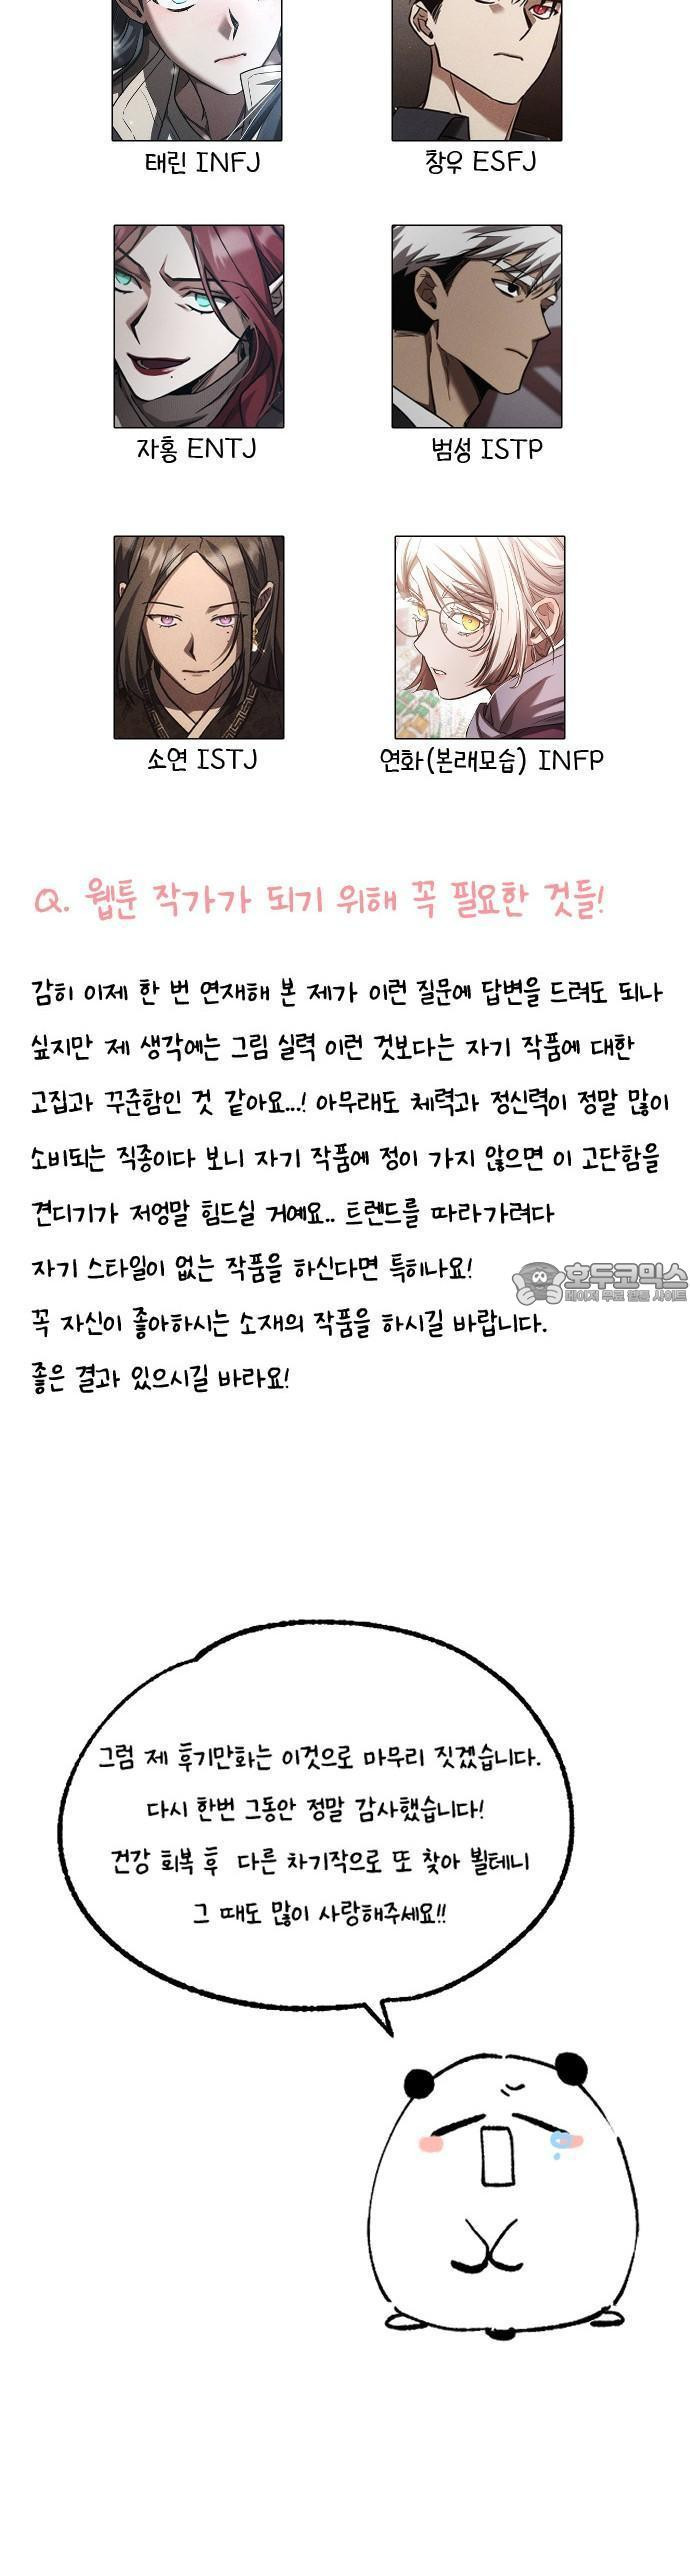 태린 INFJ
창우 ESFJ
자홍 ENTJ
범성 ISTP
소연 ISTJ
연화(본래모습) INFP
Q. 웹툰 작가가 되기 위해 꼭 필요한 것들!
감히 이제 한 번 연재해 본 제가 이런 질문에 답변을 드려도 되나
싶지만 제 생각에는 그림 실력 이런 것보다는 자기 작품에 대한
고집과 꾸준함인 것 같아요...! 아무래도 체력과 정신력이 정말 많이
소비되는 직종이다 보니 자기 작품에 정이 가지 않으면 이 고단함을
견디기가 저엉말 힘드실 거예요.. 트렌드를 따라가려다
자기 스타일이 없는 작품을 하신다면 특히나요!
호두코믹스
페이지 무료 웹툰 사이트
꼭 자신이 좋아하시는 소재의 작품을 하시길 바랍니다.
좋은 결과 있으시길 바라요!
그럼 제 후기만화는 이것으로 마무리 짓겠습니다.
다시 한번 그동안 정말 감사했습니다!
건강 회복 후 다른 차기작으로 또 찾아 뵐테니
그 때도 많이 사랑해주세요!!